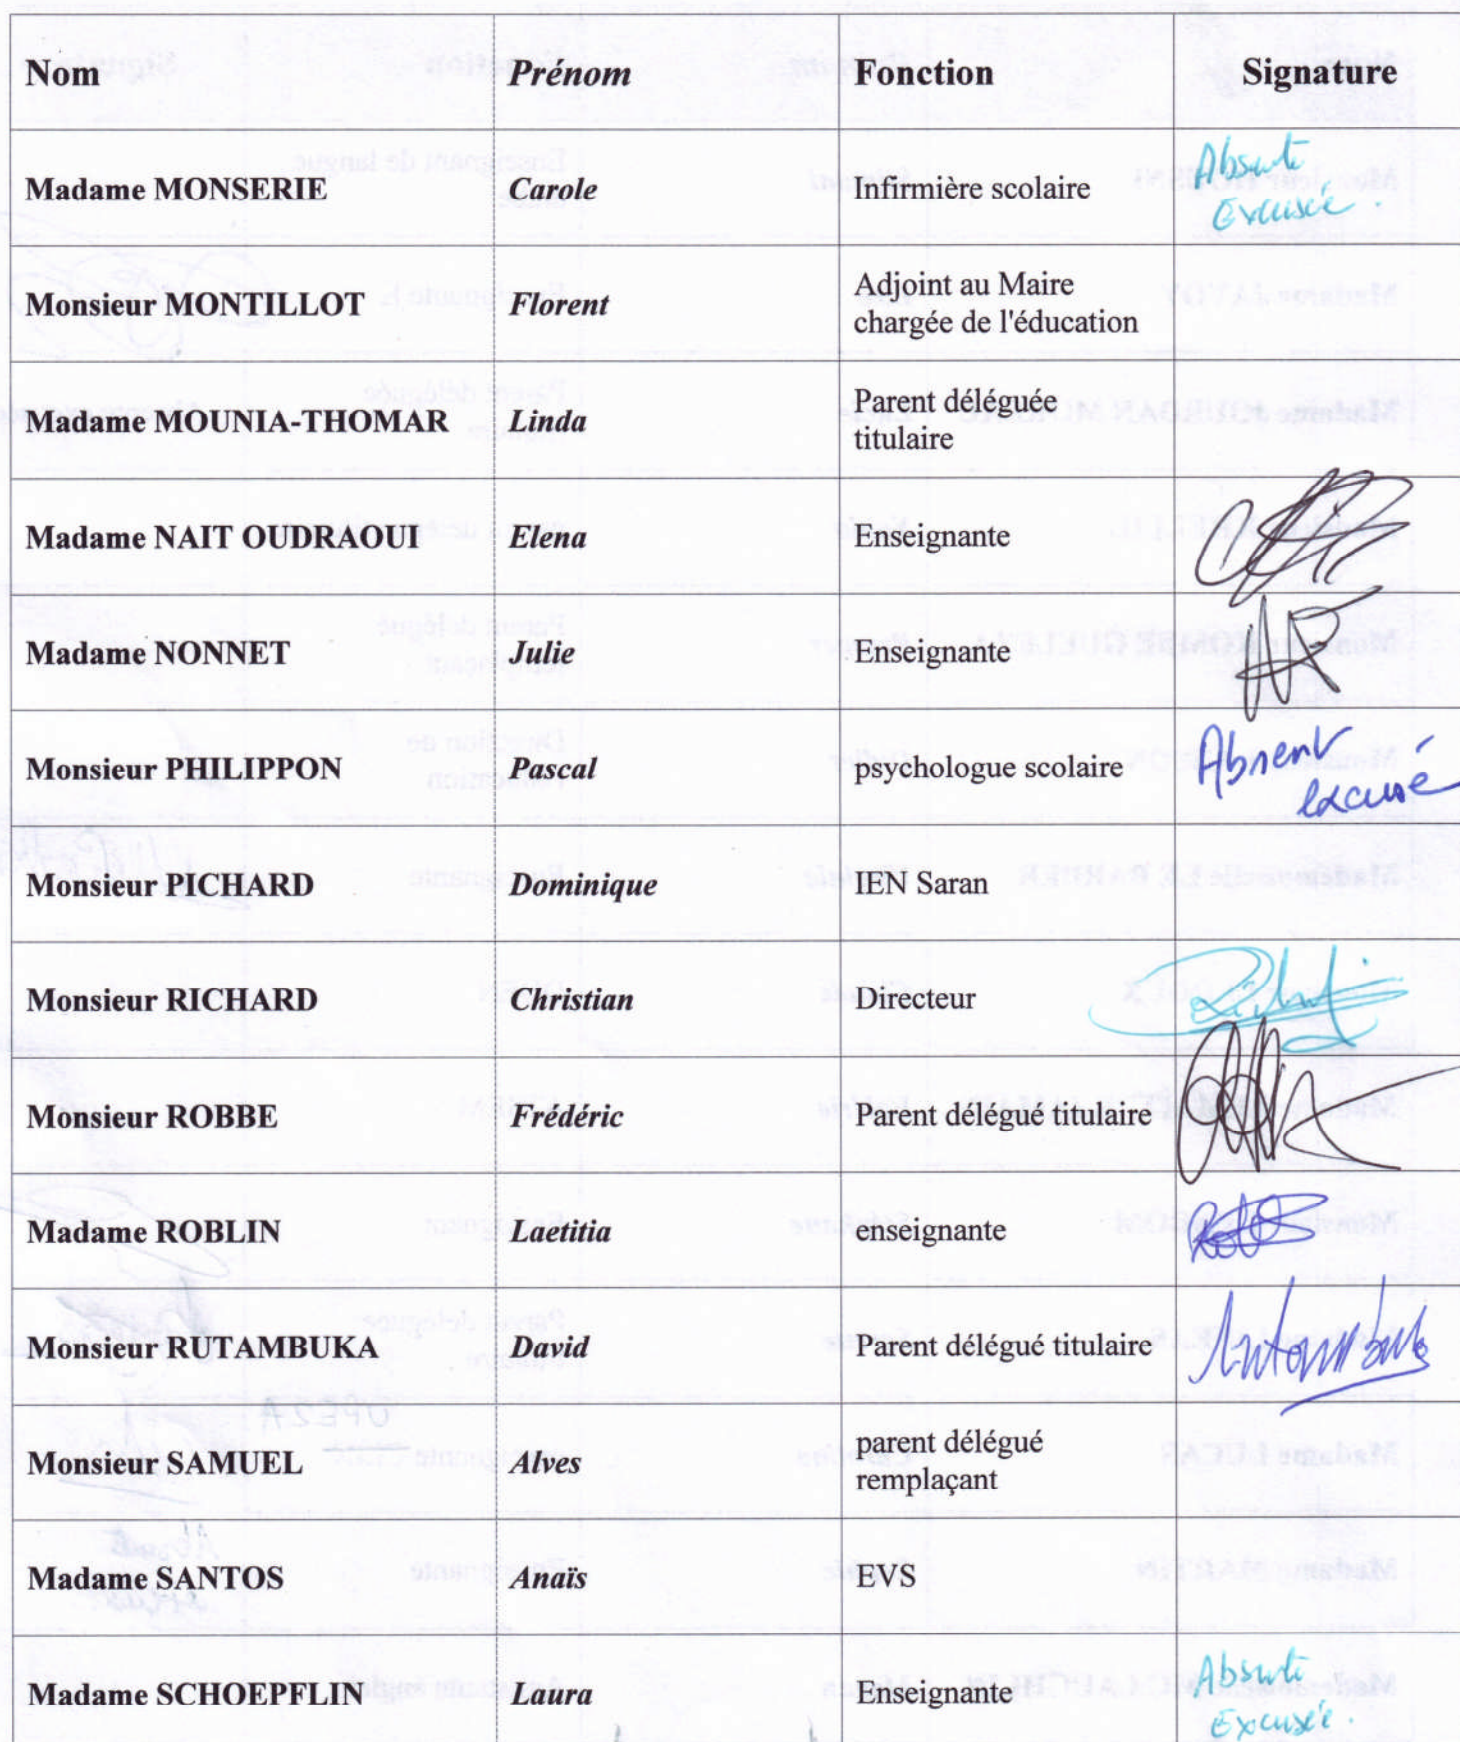 Nom Prénom Fonction Signature
Madame MONSERIE Carole Infirmière scolaire Absente
Excusée.
Monsieur MONTILLOT Florent Adjoint au Maire
chargée de l'éducation
Madame MOUNIA-THOMAR Linda Parent déléguée
titulaire
Madame NAIT OUDRAOUI Eléna Enseignante
Madame NONNET Julie Enseignante
Monsieur PHILIPPON Pascal psychologue scolaire Absent
excusé
Monsieur PICHARD Dominique IEN Saran
Monsieur RICHARD Christian Directeur
Monsieur ROBBE Frédéric Parent délégué titulaire
Madame ROBLIN Laetitia enseignante
Monsieur RUTAMBUKA David Parent délégué titulaire
Monsieur SAMUEL Alves parent délégué
remplaçant
Madame SANTOS Anaïs EVS
Madame SCHOEPFLIN Laura Enseignante Absente
Excusée.